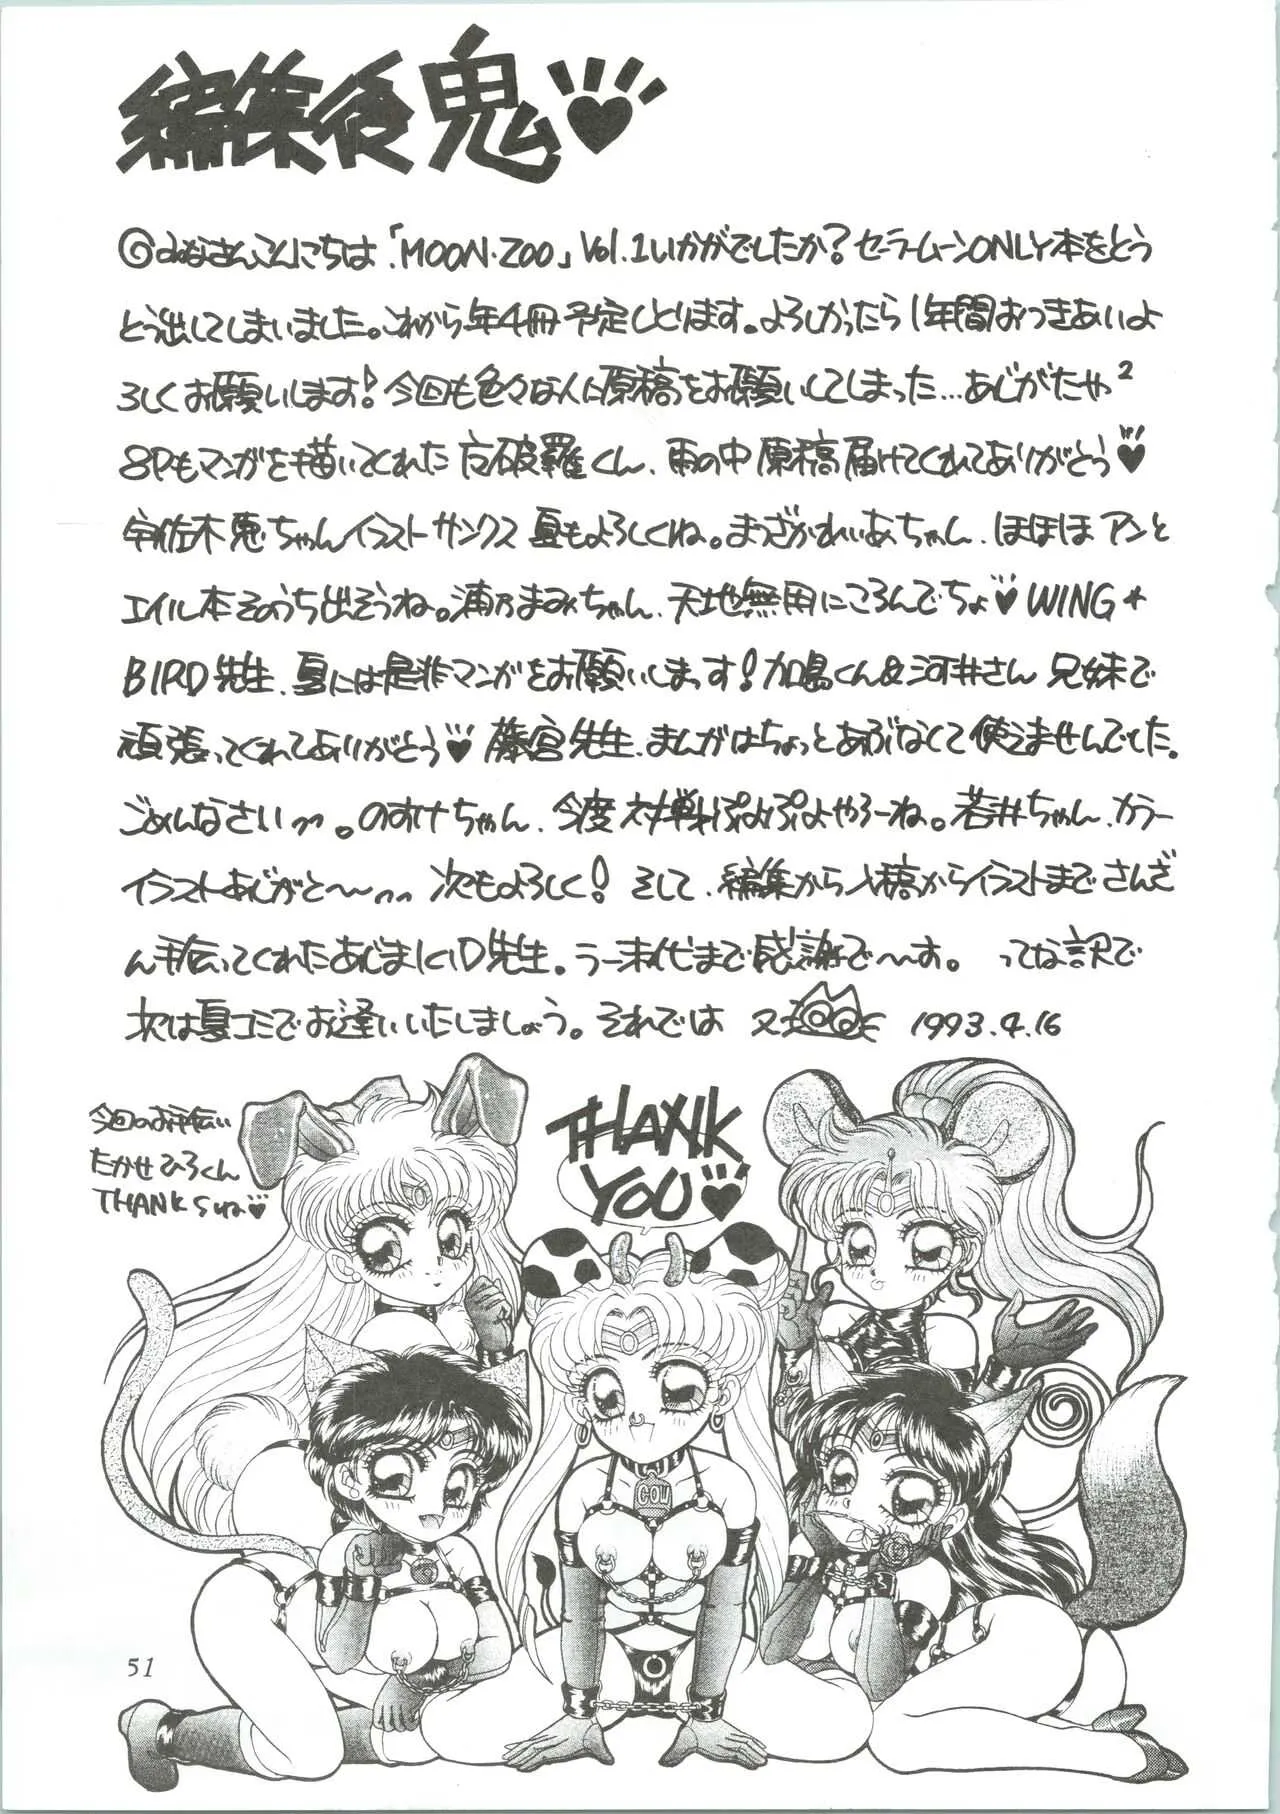 編集後鬼
◎みなさんこんにちは「MOON・ZOO」Vol.1いかがでしたか?セーラームーンONLY本をとう
とう出してしまいました。これから年4冊予定しとります。よろしかったら1年間おつきあいよ
ろしくお願いします!今回も色々な人に原稿をお願いしてしまった…ありがたや²
8Pもマンガを描いてくれた 破羅くん、雨の中原稿届けてくれてありがとう♥
宇佐木恵ちゃんイラストサンクス夏もよろしくね。まつざかれいあちゃん、ほほほアンと
エイル本そのうち出そうね。浦乃まみちゃん、天地無用にころんでちょ♥WING★
BIRD先生、夏には是非マンガをお願いします!加島くん&河井さん兄妹で
頑張ってくれてありがとう♥藤宮先生、まんがはちょっとあぶなくて使えませんでした。
ごめんなさい〜。のすけちゃん、今度対戦ぷよぷよやろーね。若井ちゃん、カラー
イラストあじがと〜〜 次もよろしく!そして、編集から入稿からイラストまでさんざ
ん手伝ってくれたあじまにID先生。うー末代まで感謝で〜〜す。ってな訳で
次は夏コミでお逢いいたしましょう。それでは 1993.4.16
今回のお手伝い
たかせひろくん
THANKSね♥
THANK
YOU♥
COW
51